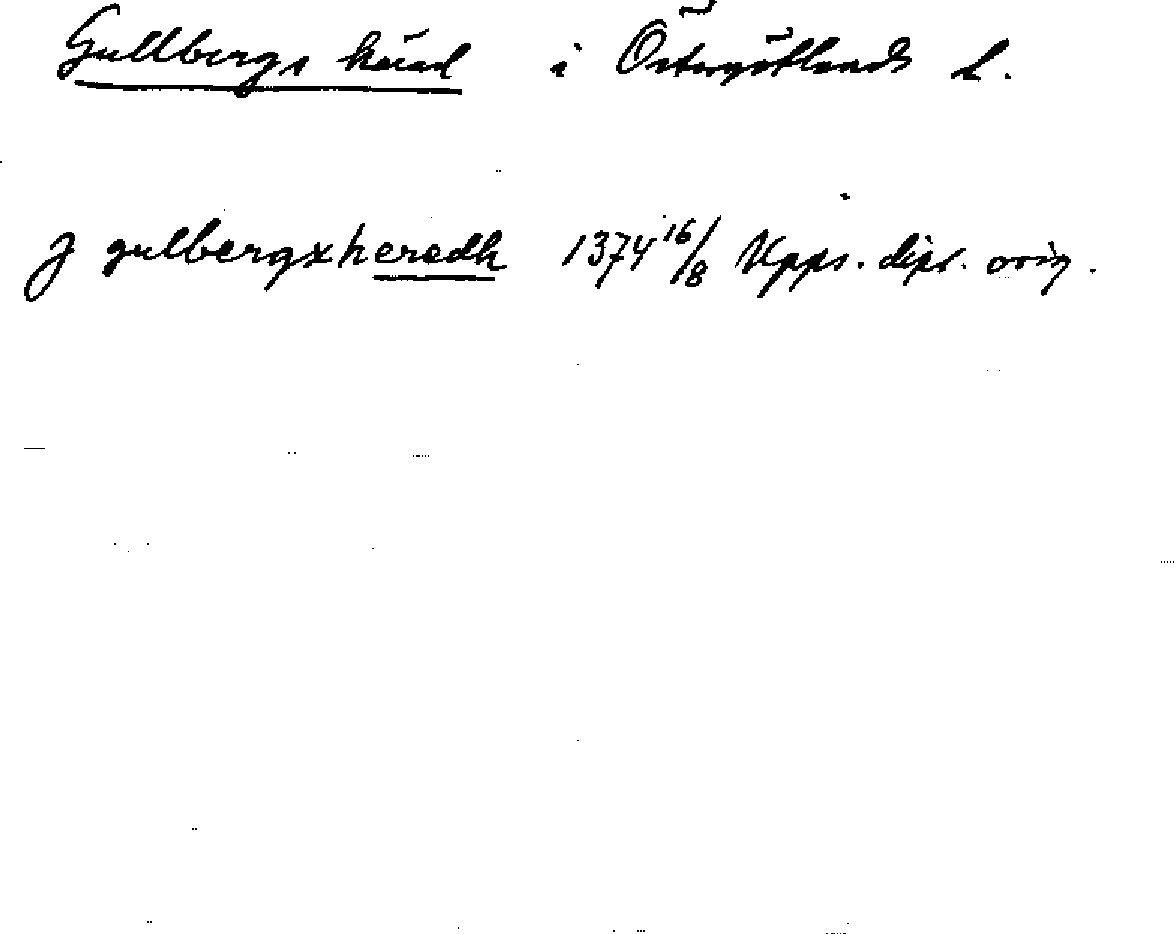 Gullbergs härad i Östergötlands l.
J gulbergxheredh 1374 16/8 Upps. dipl. orig.